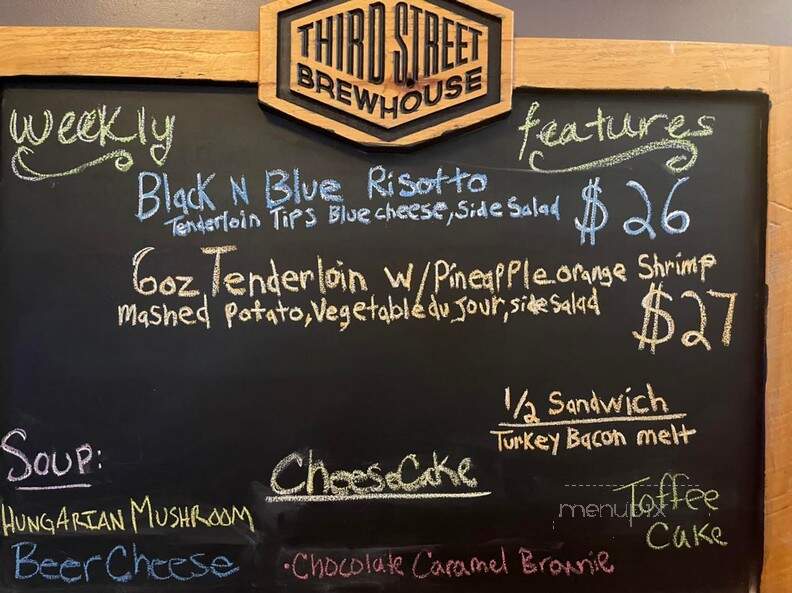 THIRD STREET
BREWHOUSE
Weekly features
Black N Blue Risotto
Tenderloin Tips Blue cheese, Side Salad $26
6oz Tenderloin w/Pineapple orange Shrimp
mashed Potato, Vegetable du Jour, side salad $27
1/2 Sandwich
Turkey Bacon melt
Soup:
HUNGARIAN MUSHROOM
Beer Cheese
CheeseCake
• Chocolate Caramel Brownie
Toffee
Cake
menupix